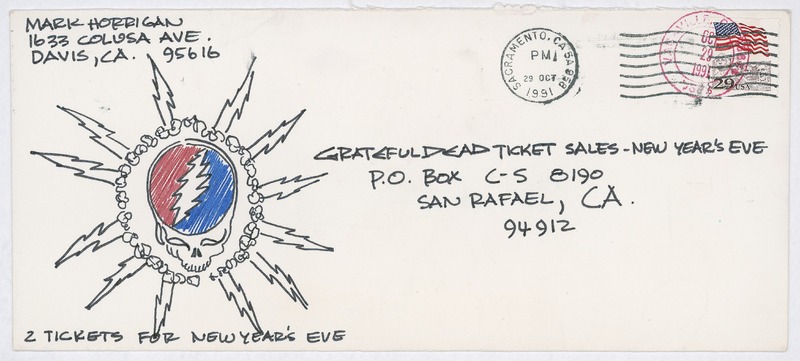 MARK HORRIGAN
1633 COLUSA AVE.
DAVIS, CA. 95616
SACRAMENTO, CA 958
PM
29 OCT
1991
29 USA
GRATEFUL DEAD TICKET SALES - NEW YEAR'S EVE
P.O. BOX C-S 8190
SAN RAFAEL, CA.
94912
2 TICKETS FOR NEW YEAR'S EVE